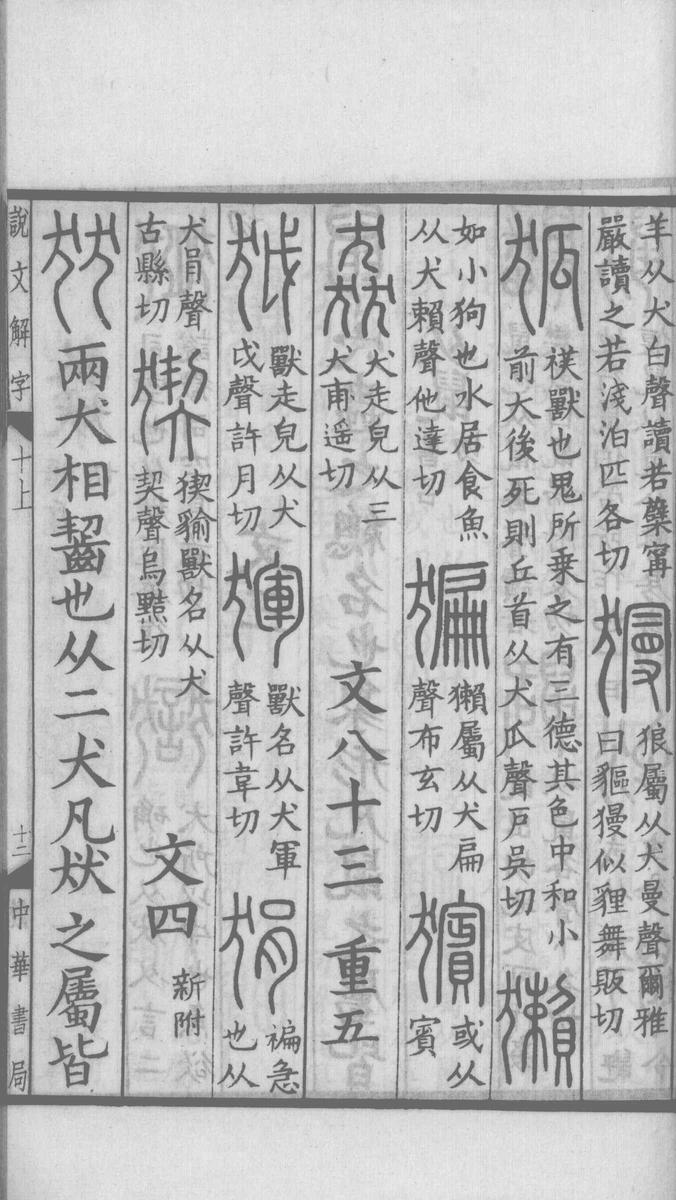 羊从犬白聲讀若蘗甯
嚴讀之若淺泊匹各切
獌
狼屬从犬曼聲爾雅
曰貙獌似貍舞販切
狐
䄏獸也鬼所乘之有三德其色中和小
前大後死則丘首从犬瓜聲戶吳切
獺
如小狗也水居食魚
从犬賴聲他達切
猵
獺屬从犬扁
聲布玄切
獱
或从
賓
猋
犬走皃从三
犬甫遥切
文八十三 重五
狘
獸走皃从犬
戉聲許月切
㹆
獸名从犬軍
聲許韋切
狷
褊急
也从
犬肙聲
古縣切
猰
猰貐獸名从犬
契聲烏黠切
文四
新附
㹜兩犬相齧也从二犬凡㹜之屬皆
說文解字
十上
十二
中華書局